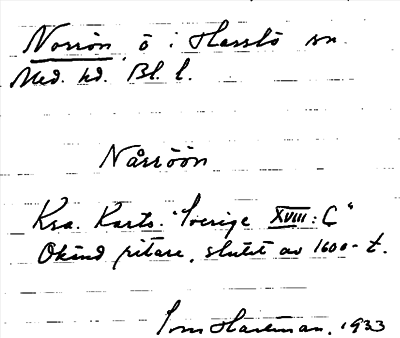 Norrön, ö i Hasslö sn.
Med. hd. Bl. l.
Nårröön
Kra. Karts. "Sverige XVIII: C"
Okänd ritare, slutet av 1600-t.
1933